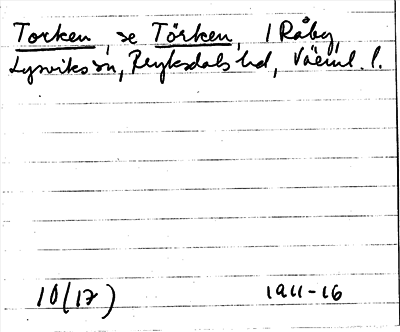 Torken, se Törken, i Råby,
Lysviks sn, Fryksdals hd, Värml. l.
10(17) 1911-16